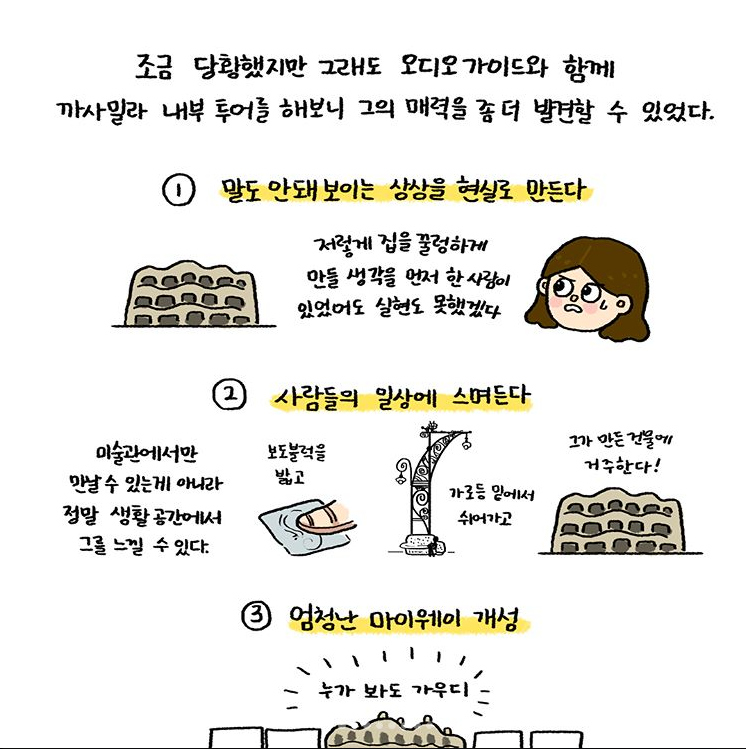 조금 당황했지만 그래도 오디오 가이드와 함께
까사밀라 내부 투어를 해보니 그의 매력을 좀 더 발견할 수 있었다.
① 말도 안돼 보이는 상상을 현실로 만든다
저렇게 집을 꿀렁하게
만들 생각을 먼저 한 사람이
있었어도 실현도 못했겠다
② 사람들의 일상에 스며든다
미술관에서만
만날 수 있는게 아니라
정말 생활 공간에서
그를 느낄 수 있다.
보도블럭을
밟고
가로등 밑에서
쉬어가고
그가 만든 건물에
거주한다!
③ 엄청난 마이웨이 개성
누가 봐도 가우디